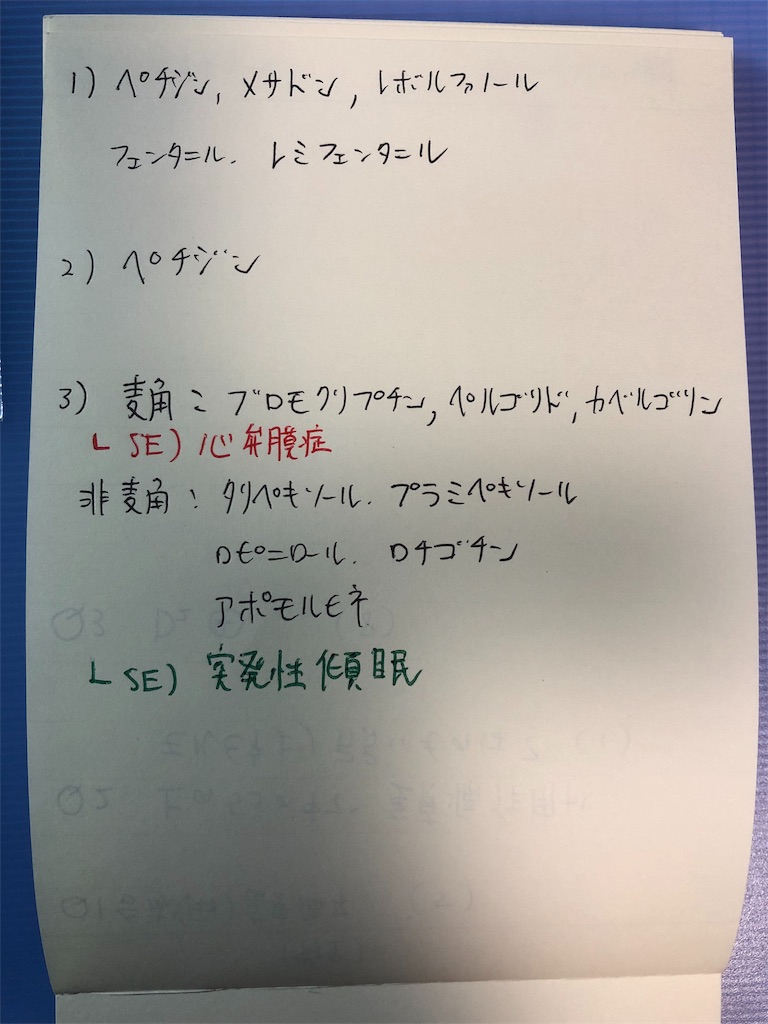 1) ペチジン, メサドン, レボルファノール
フェンタニル. レミフェンタニル
2) ペチジン
3) 麦角: ブロモクリプチン, ペルゴリド, カベルゴリン
L SE) 心弁膜症
非麦角: タリペキソール. プラミペキソール
ロピニロール. ロチゴチン
アポモルヒネ
L SE) 突発性傾眠
Q3
Q2
Q1